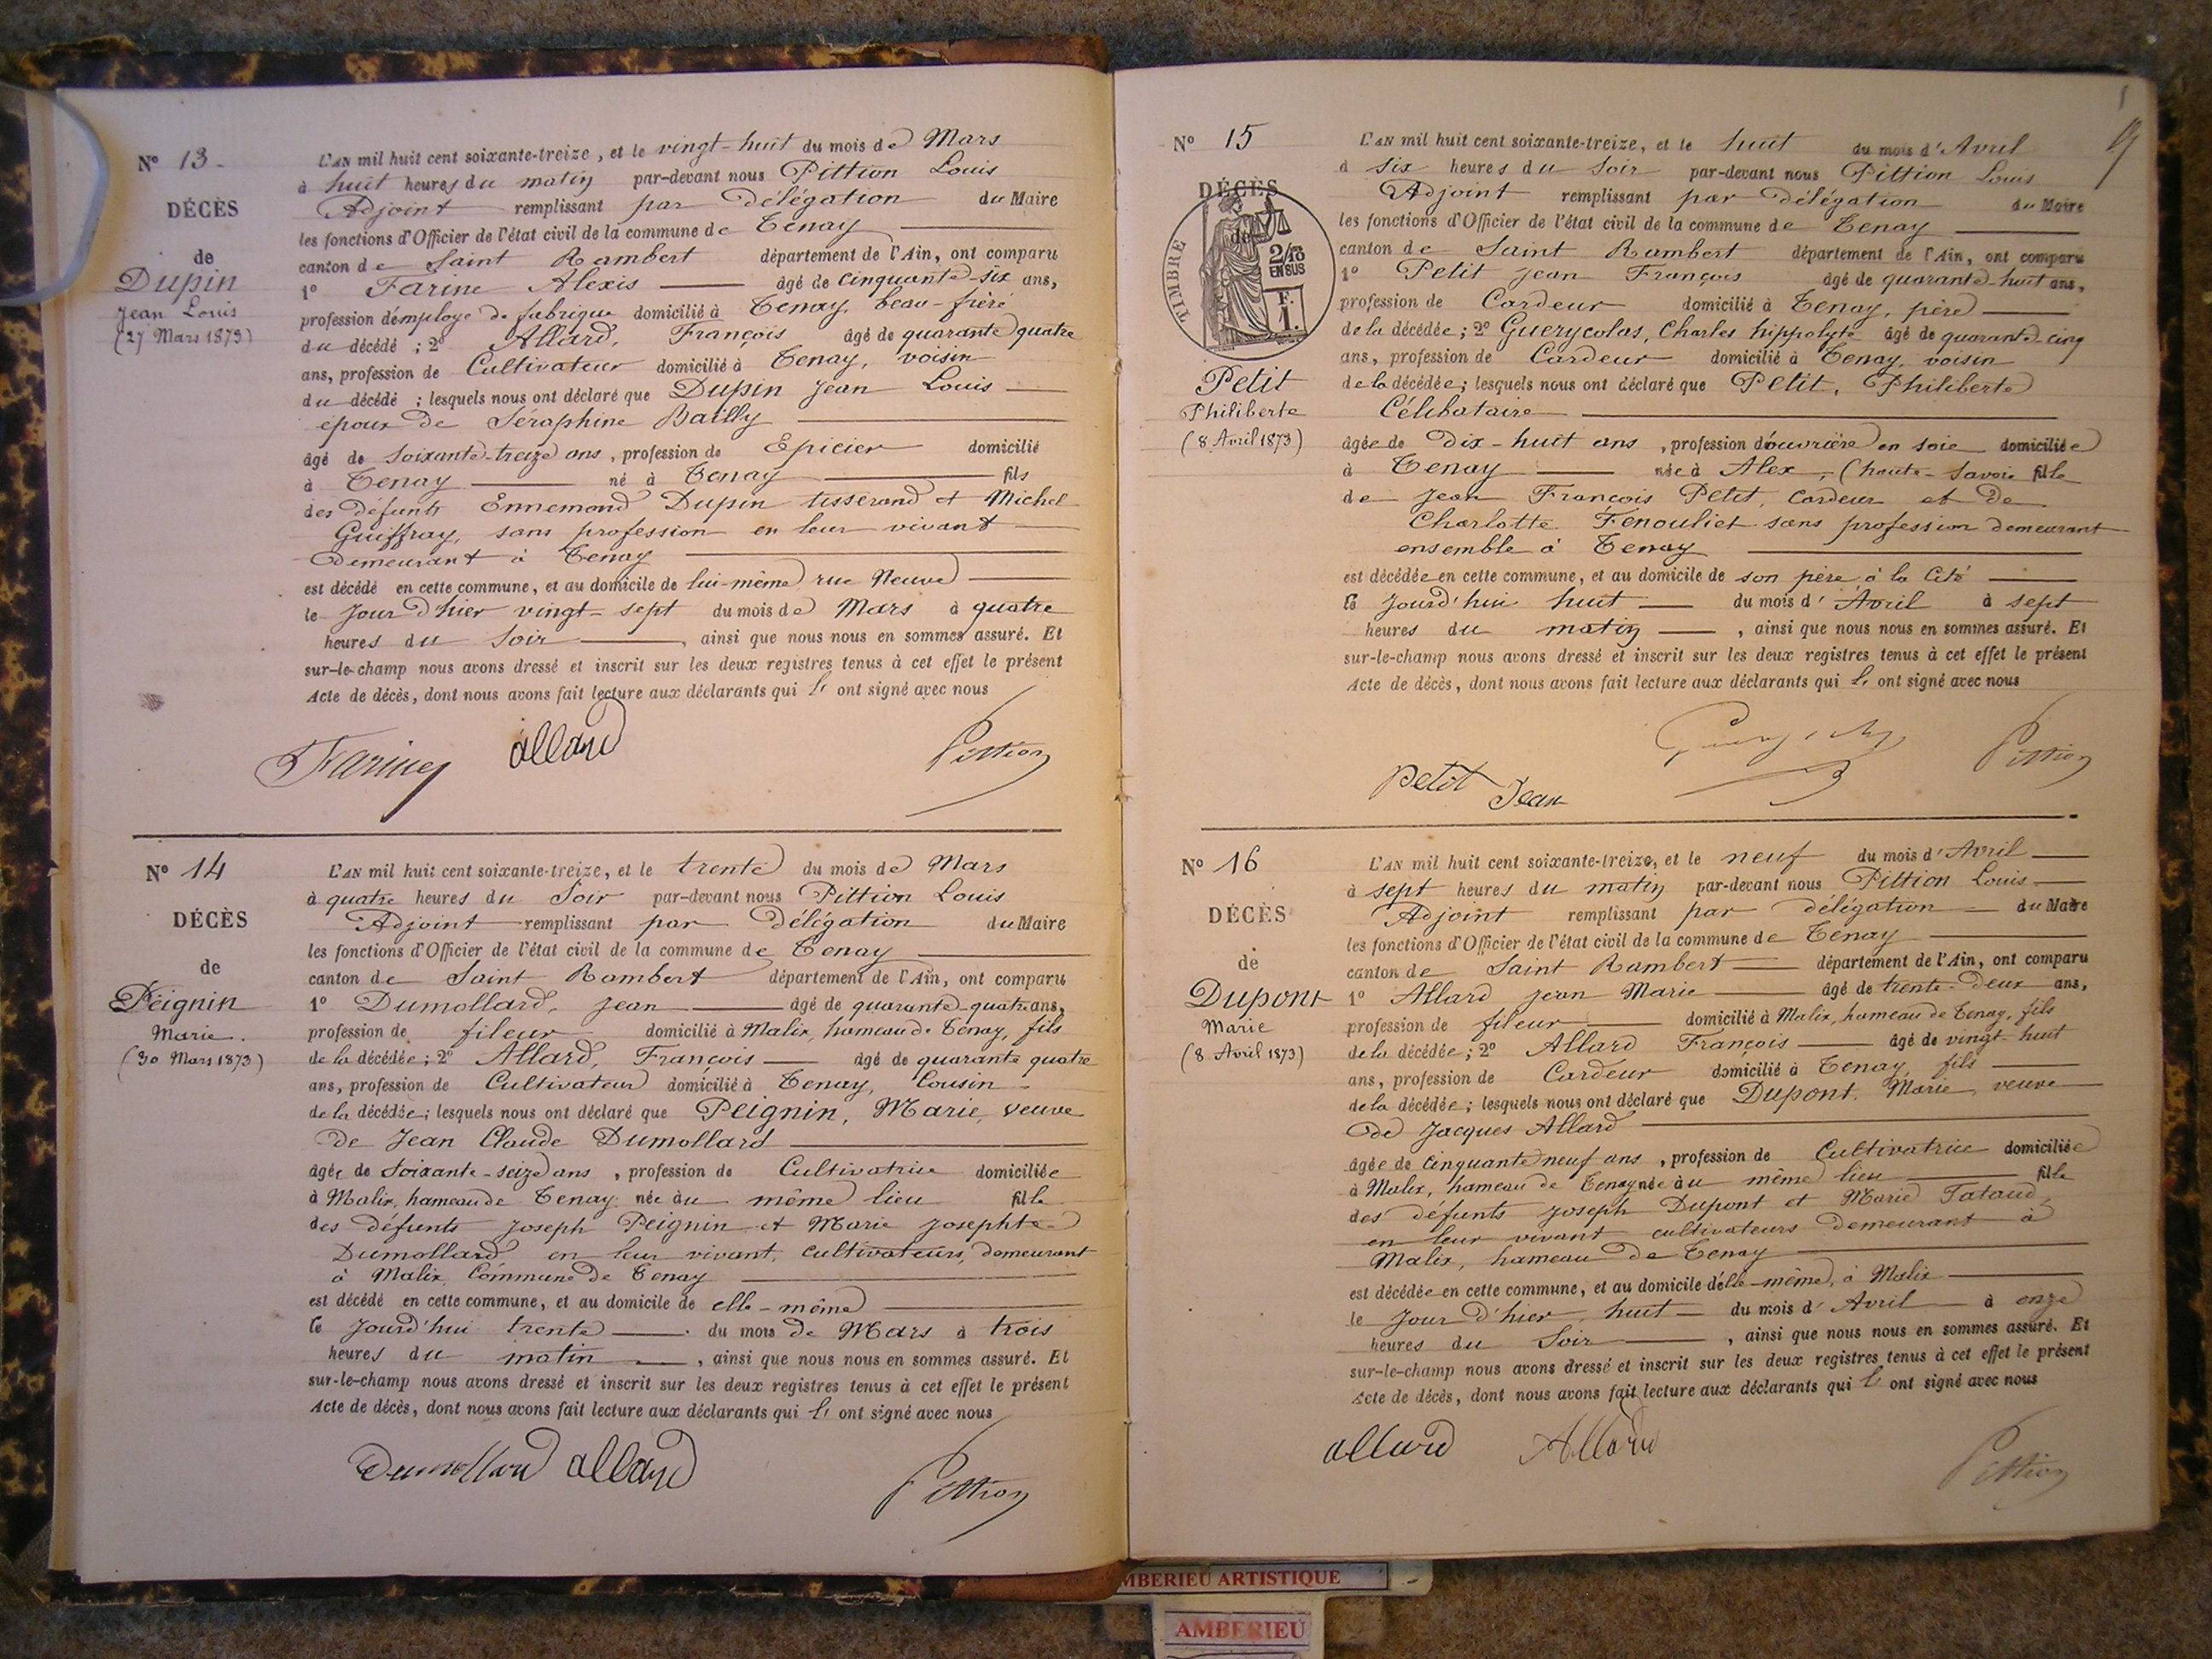 N° 13
DÉCÈS
de
Dupin
Jean Louis
(27 Mars 1873)
L'AN mil huit cent soixante-treize, et le vingt-huit du mois de Mars
à huit heures du matin par-devant nous Pittion Louis
Adjoint remplissant par Délégation du Maire
les fonctions d'Officier de l'état civil de la commune de Tenay
canton de Saint Rambert département de l'Ain, ont comparu
1° Farine Alexis âgé de cinquante-six ans,
profession d'employé de fabrique domicilié à Tenay, beau-frère
du décédé ; 2° Allard, François âgé de quarante quatre
ans, profession de Cultivateur domicilié à Tenay, voisin
du décédé ; lesquels nous ont déclaré que Dupin Jean Louis
époux de Séraphine Bailly
âgé de soixante-treize ans, profession de Epicier domicilié
à Tenay né à Tenay fils
des défunts Ennemond Dupin tisserand et Michel
Guiffray, sans profession en leur vivant
demeurant à Tenay
est décédé en cette commune, et au domicile de lui-même rue Neuve
le jour d'hier vingt-sept du mois de Mars à quatre
heures du soir, ainsi que nous nous en sommes assuré. Et
sur-le-champ nous avons dressé et inscrit sur les deux registres tenus à cet effet le présent
Acte de décès, dont nous avons fait lecture aux déclarants qui ont signé avec nous
Farine allard Pittion
N° 14
DÉCÈS
de
Peignin
Marie.
(30 Mars 1873)
L'AN mil huit cent soixante-treize, et le trente du mois de Mars
à quatre heures du Soir par-devant nous Pittion Louis
Adjoint remplissant par Délégation du Maire
les fonctions d'Officier de l'état civil de la commune de Tenay
canton de Saint Rambert département de l'Ain, ont comparu
1° Dumollard, Jean âgé de quarante-quatre ans,
profession de fileur domicilié à Malix, hameau de Tenay, fils
de la décédée ; 2° Allard, François âgé de quarante quatre
ans, profession de Cultivateur domicilié à Tenay, Cousin
de la décédée ; lesquels nous ont déclaré que Peignin, Marie, veuve
de Jean Claude Dumollard
âgée de soixante-seize ans, profession de Cultivatrice domiciliée
à Malix, hameau de Tenay née au même lieu fille
des défunts Joseph Peignin et Marie Josephte
Dumollard en leur vivant, cultivateurs, demeurant
à Malix, Commune de Tenay
est décédé en cette commune, et au domicile de elle-même
le jourd'hui trente du mois de Mars à trois
heures du matin, ainsi que nous nous en sommes assuré. Et
sur-le-champ nous avons dressé et inscrit sur les deux registres tenus à cet effet le présent
Acte de décès, dont nous avons fait lecture aux déclarants qui ont signé avec nous
Dumollard allard Pittion
N° 15
DÉCÈS
de
TIMBRE
2/10
EN SUS
F.
1.
Petit
Philiberte
(8 Avril 1873)
L'AN mil huit cent soixante-treize, et le huit du mois d'Avril
à six heures du soir par-devant nous Pittion Louis
Adjoint remplissant par délégation du Maire
les fonctions d'Officier de l'état civil de la commune de Tenay
canton de Saint Rambert département de l'Ain, ont comparu
1° Petit Jean François âgé de quarante-huit ans,
profession de Cardeur domicilié à Tenay, père
de la décédée ; 2° Guerycolas, Charles hippolyte âgé de quarante-cinq
ans, profession de Cardeur domicilié à Tenay, voisin
de la décédée ; lesquels nous ont déclaré que Petit, Philiberte
Célibataire
âgée de dix-huit ans, profession d'ouvrière en soie domiciliée
à Tenay née à Alex, (haute-Savoie fille
de Jean François Petit, cardeur et de
Charlotte Fenouliet sans profession demeurant
ensemble à Tenay
est décédée en cette commune, et au domicile de son père, à la Cité
le jourd'hui huit du mois d'Avril à sept
heures du matin, ainsi que nous nous en sommes assuré. Et
sur-le-champ nous avons dressé et inscrit sur les deux registres tenus à cet effet le présent
Acte de décès, dont nous avons fait lecture aux déclarants qui ont signé avec nous
Petit Jean Pittion
N° 16
DÉCÈS
de
Dupont
Marie
(8 Avril 1873)
L'AN mil huit cent soixante-treize, et le neuf du mois d'Avril
à sept heures du matin par-devant nous Pittion Louis
Adjoint remplissant par délégation du Maire
les fonctions d'Officier de l'état civil de la commune de Tenay
canton de Saint Rambert département de l'Ain, ont comparu
1° Allard Jean Marie âgé de trente-deux ans,
profession de fileur domicilié à Malix, hameau de Tenay, fils
de la décédée ; 2° Allard François âgé de vingt-huit
ans, profession de Cardeur domicilié à Tenay, fils
de la décédée ; lesquels nous ont déclaré que Dupont, Marie, veuve
de Jacques Allard
âgée de cinquante neuf ans, profession de Cultivatrice domiciliée
à Malix, hameau de Tenay née au même lieu fille
des défunts Joseph Dupont et Marie Tataud,
en leur vivant cultivateurs demeurant à
Malix, hameau de Tenay
est décédée en cette commune, et au domicile d'elle-même, à Malix
le jour d'hier huit du mois d'Avril à onze
heures du Soir, ainsi que nous nous en sommes assuré. Et
sur-le-champ nous avons dressé et inscrit sur les deux registres tenus à cet effet le présent
Acte de décès, dont nous avons fait lecture aux déclarants qui ont signé avec nous
allard Allard Pittion
MBERIEU ARTISTIQUE
AMBERIEU